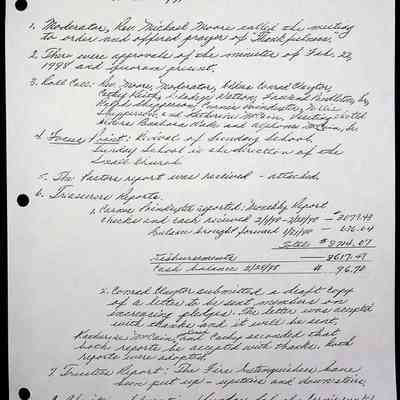 1. Moderator, Rev. Michael Moore called the meeting
to order and offered prayer of Thankfulness.
2. There were approvals of the minutes of Feb. 22,
1998 and Quorum present.
3. Roll Call: Rev. Moore, Moderator, Elders Conrad Clayton,
Cathy Keith,
Ralph Shepperson, Carrie Poindexter, Willie
Shepperson, and Katherine McCain, Visiting
Barbara and Alphonso McCain, Sr.
4. Focus Point: Revival of Sunday School,
Sunday School is the direction of the
Church.
5. The Pastors report was received - attached.
6. Treasurers Reports.
1. Carrie Poindexter reported: Monthly Report
Checks and cash received 2/1/98 - 2/28/98 -
balance brought forward 1/31/98 - 636.64
Total $ 8714.07
Disbursements 8617.47
Cash balance 2/28/98 $ 96.70
2. Conrad Clayton submitted a draft copy
of a letter to be sent members on
increasing pledges. The letter was accepted
with thanks and it will be sent.
Katherine McCain, and Cathy seconded that
both reports be accepted with thanks. Both
reports were adopted.
7. Trustees Report: The Fire Extinguishers have
been put up - upstairs and downstairs.